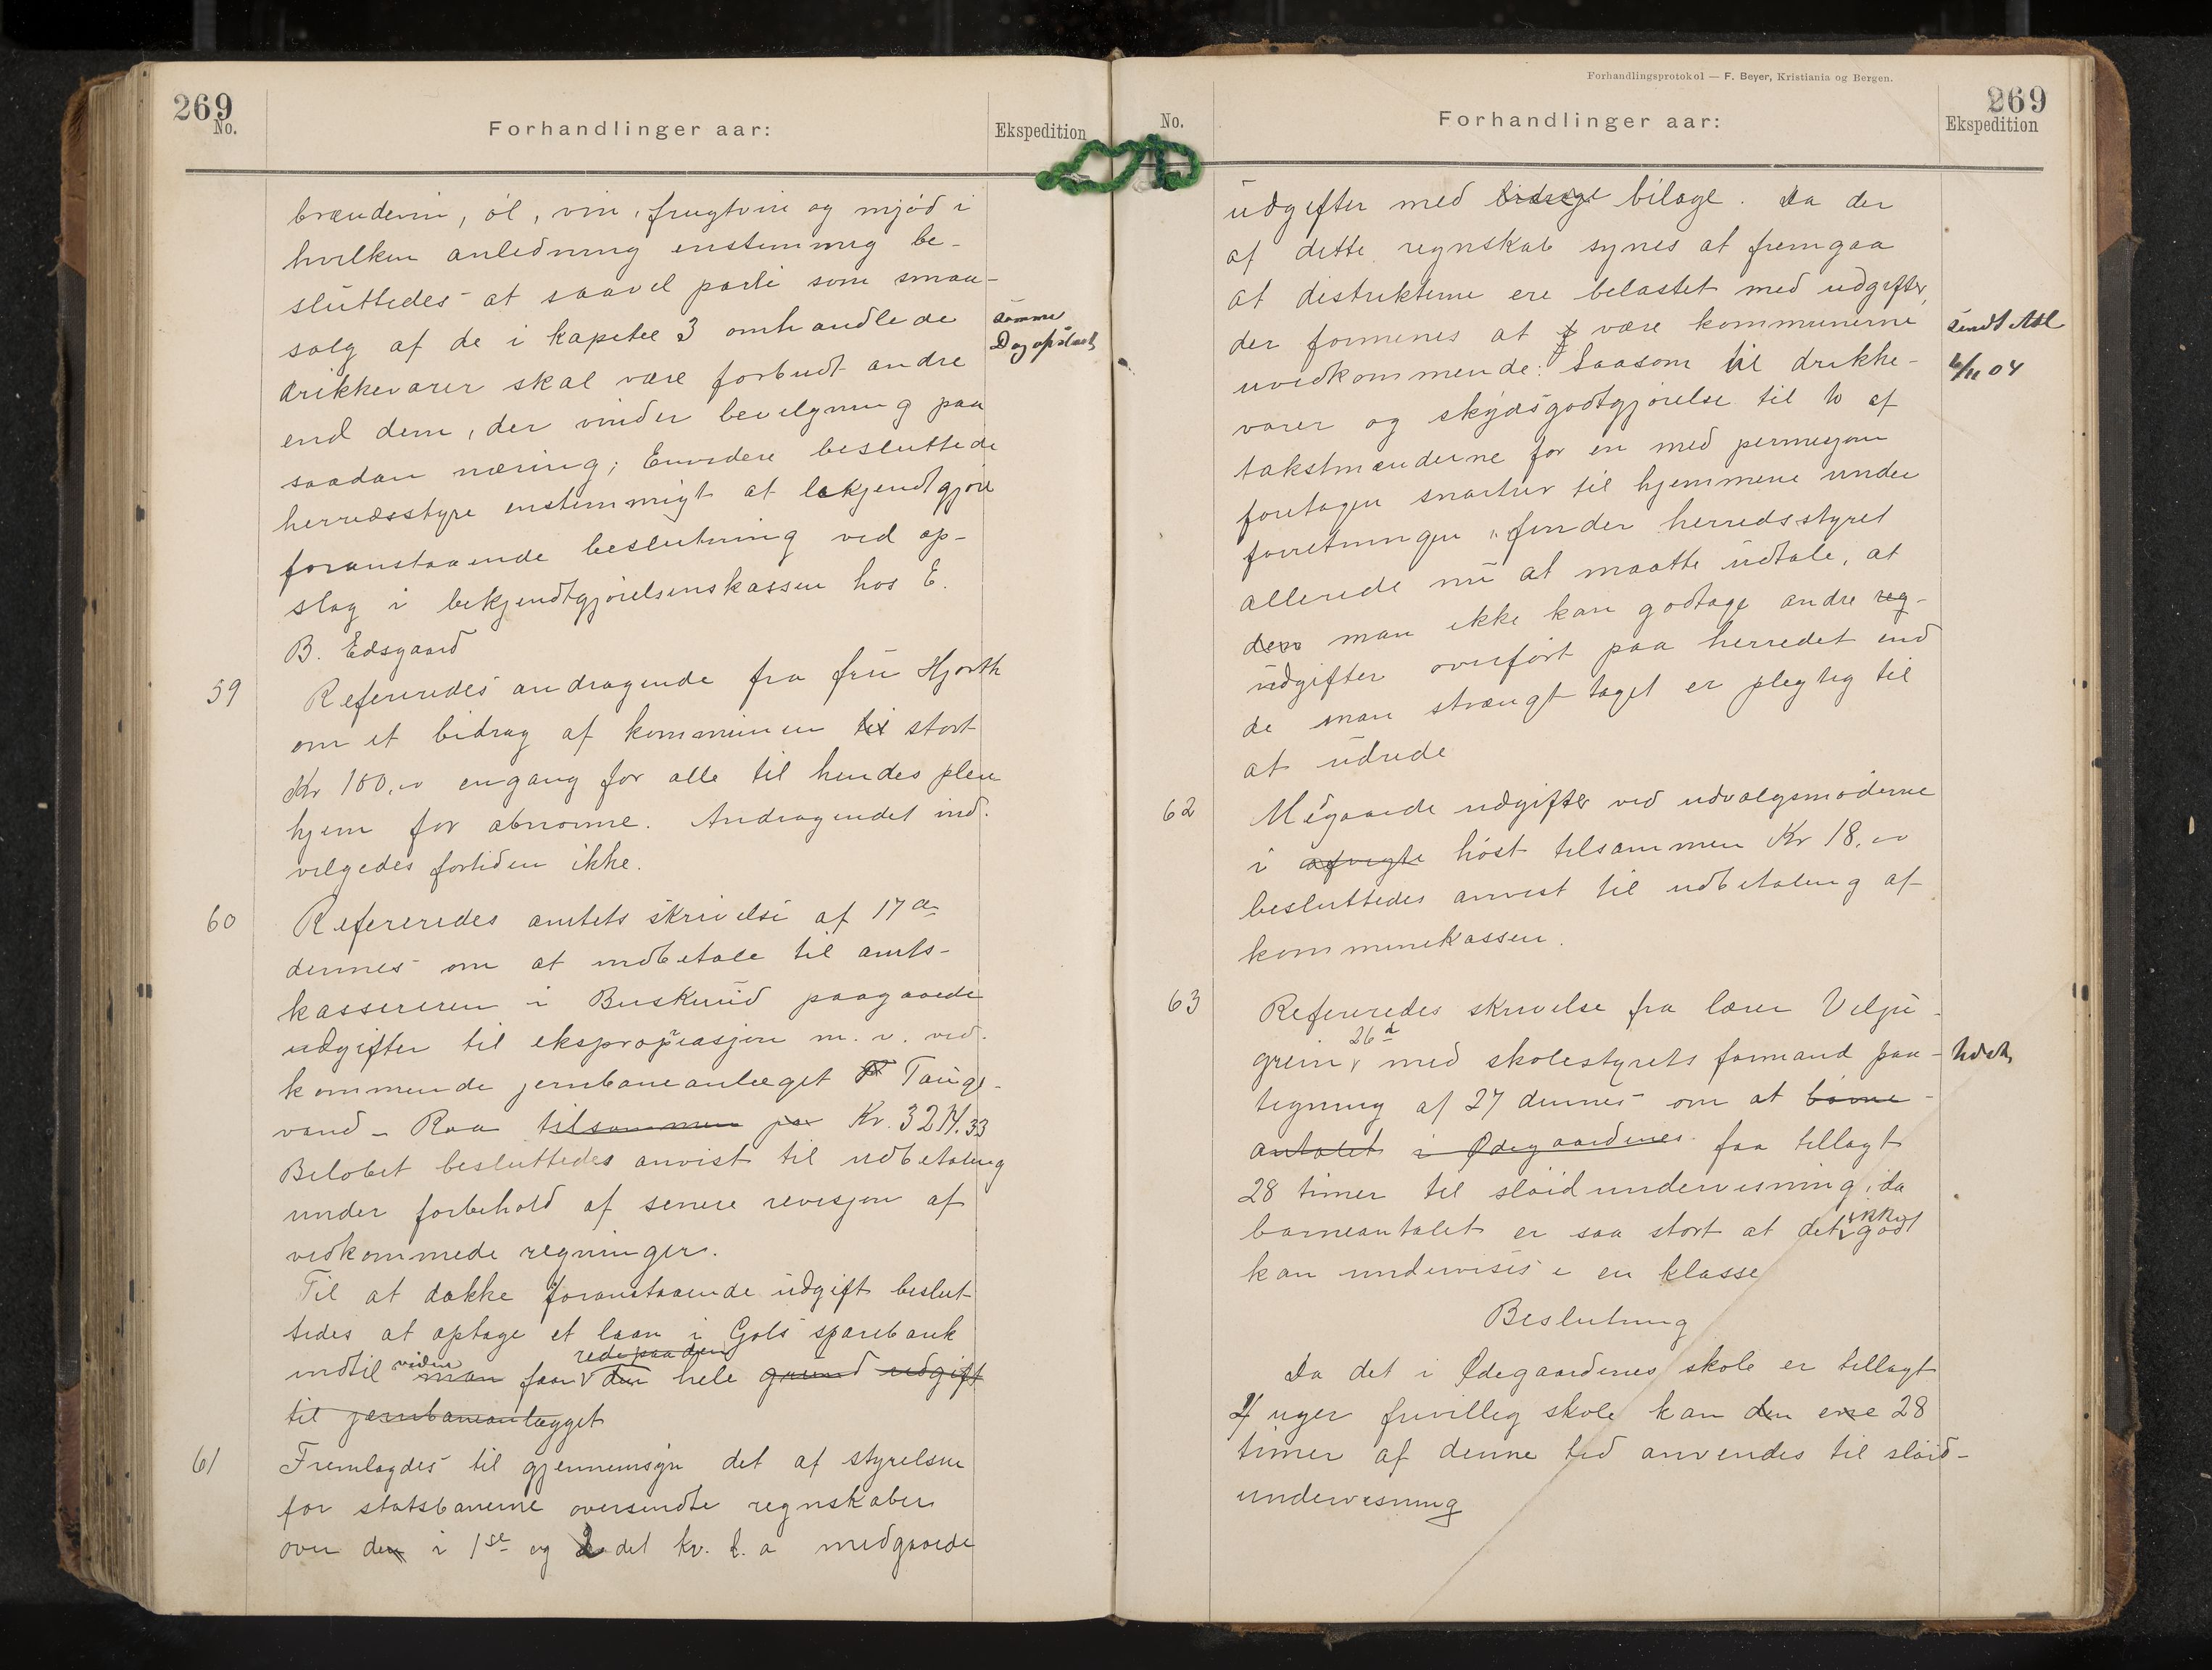 269
No.
Forhandlinger aar:
Ekspedition
brændevin, øl, vin, frugtvin og mjød i
hvilken anledning enstemmig be-
sluttedes at saavel parti som smaa-
salg af de i kapitel 3 omhandlede
drikkevarer skal være forbudt andre
end dem, der vinder bevilgning paa
saadan næring; Envidere besluttede
herredsstyre enstemmigt at bekjendtgjøre
foranstaaende beslutning ved op-
slag i bekjendtgjørelsenskassen hos E.
B. Edsgaard
samme
Dag opslaat
59
Refereredes andragende fra frü Hjorth
om et bidrag af kommünen til stort
Kr 100,00 engang for alle til hendes pleie
hjem for abnorme. Andragendet ind-
vilgedes fortiden ikke.
60
Refereredes amtets skrivelse af 17de
dennes om at indbetale til amts-
kassereren i Buskerüd paagaaede
udgifter til ekspropriasjon m. v. ved-
kommende jernbaneanlæget Tauge-
vand - Roa tilsammen paa Kr. 3214.33
Beløbet besluttedes anvist til udbetaling
under forbehold af senere revisjon af
vedkommede regninger.
Til at dække foranstaaende üdgift beslut-
tedes at optage et laan i Gols sparebank
rede paa den
indtil videre man faar den hele grund udgift
til jernbaneanlægget
61
Fremlagdes til gjennemsyn det af styrelsen
for statsbanerne oversendte regnskaber
over den i 1ste og 2 det kv. l. a medgaaede
Forhandlingsprotokol — F. Beyer, Kristiania og Bergen.
269
No.
Forhandlinger aar:
Ekspedition
üdgifter med bilage. Da der
af dette regnskab synes at fremgaa
at distrikterne ere belastet med udgifter,
der formenes at være kommunerne
uvedkommende: Saasom til drikke-
varer og skydsgodtgjørelse til to af
takstmænderne for en med permisjon
foretagen snartur til hjemmene under
forretningen, finder herredsstyret
allerede nü at maatte üdtale, at
den man ikke kan godtage andre reg-
üdgifter overført paa herredet end
de man strængt taget er plegtig til
at üdrede
Sendt Atl
6/11 04
62
Medgaaede udgifter ved udvalgsmøderne
i afvigte høst tilsammen Kr 18,00
besluttedes anvist til udbetaling af
kommunekassen.
63
Refereredes skrivelse fra lærer Velju-
26d
grein med skolestyrets formand paa-
tegning af 27 dennes om at børne-
antalet i Ødegaardenes faa tillagt
28 timer til sløidundervisning, da
barneantalet er saa stort at det ikke godt
kan undervises i en klasse
Beslutning
Da det i Ødegaardenes skole er tillagt
4 uger frivillig skole kan den ene 28
timer af denne tid anvendes til sløid-
undervisning
Udsk.